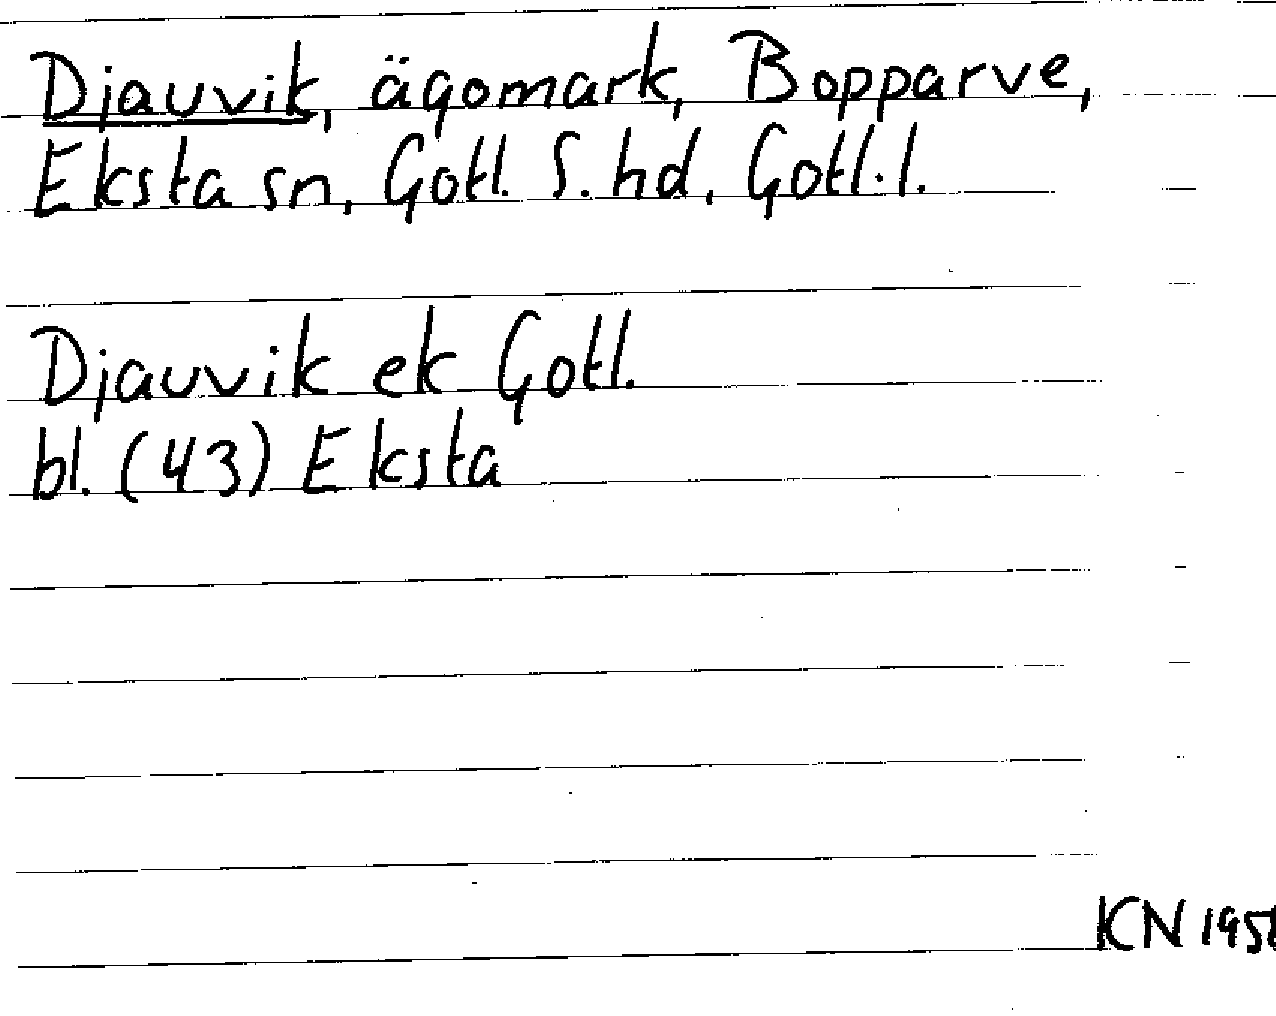 Djauvik, ägomark, Bopparve,
Eksta sn, Gotl. S. hd, Gotl. l.
Djauvik ek Gotl.
bl. (43) Eksta
KN